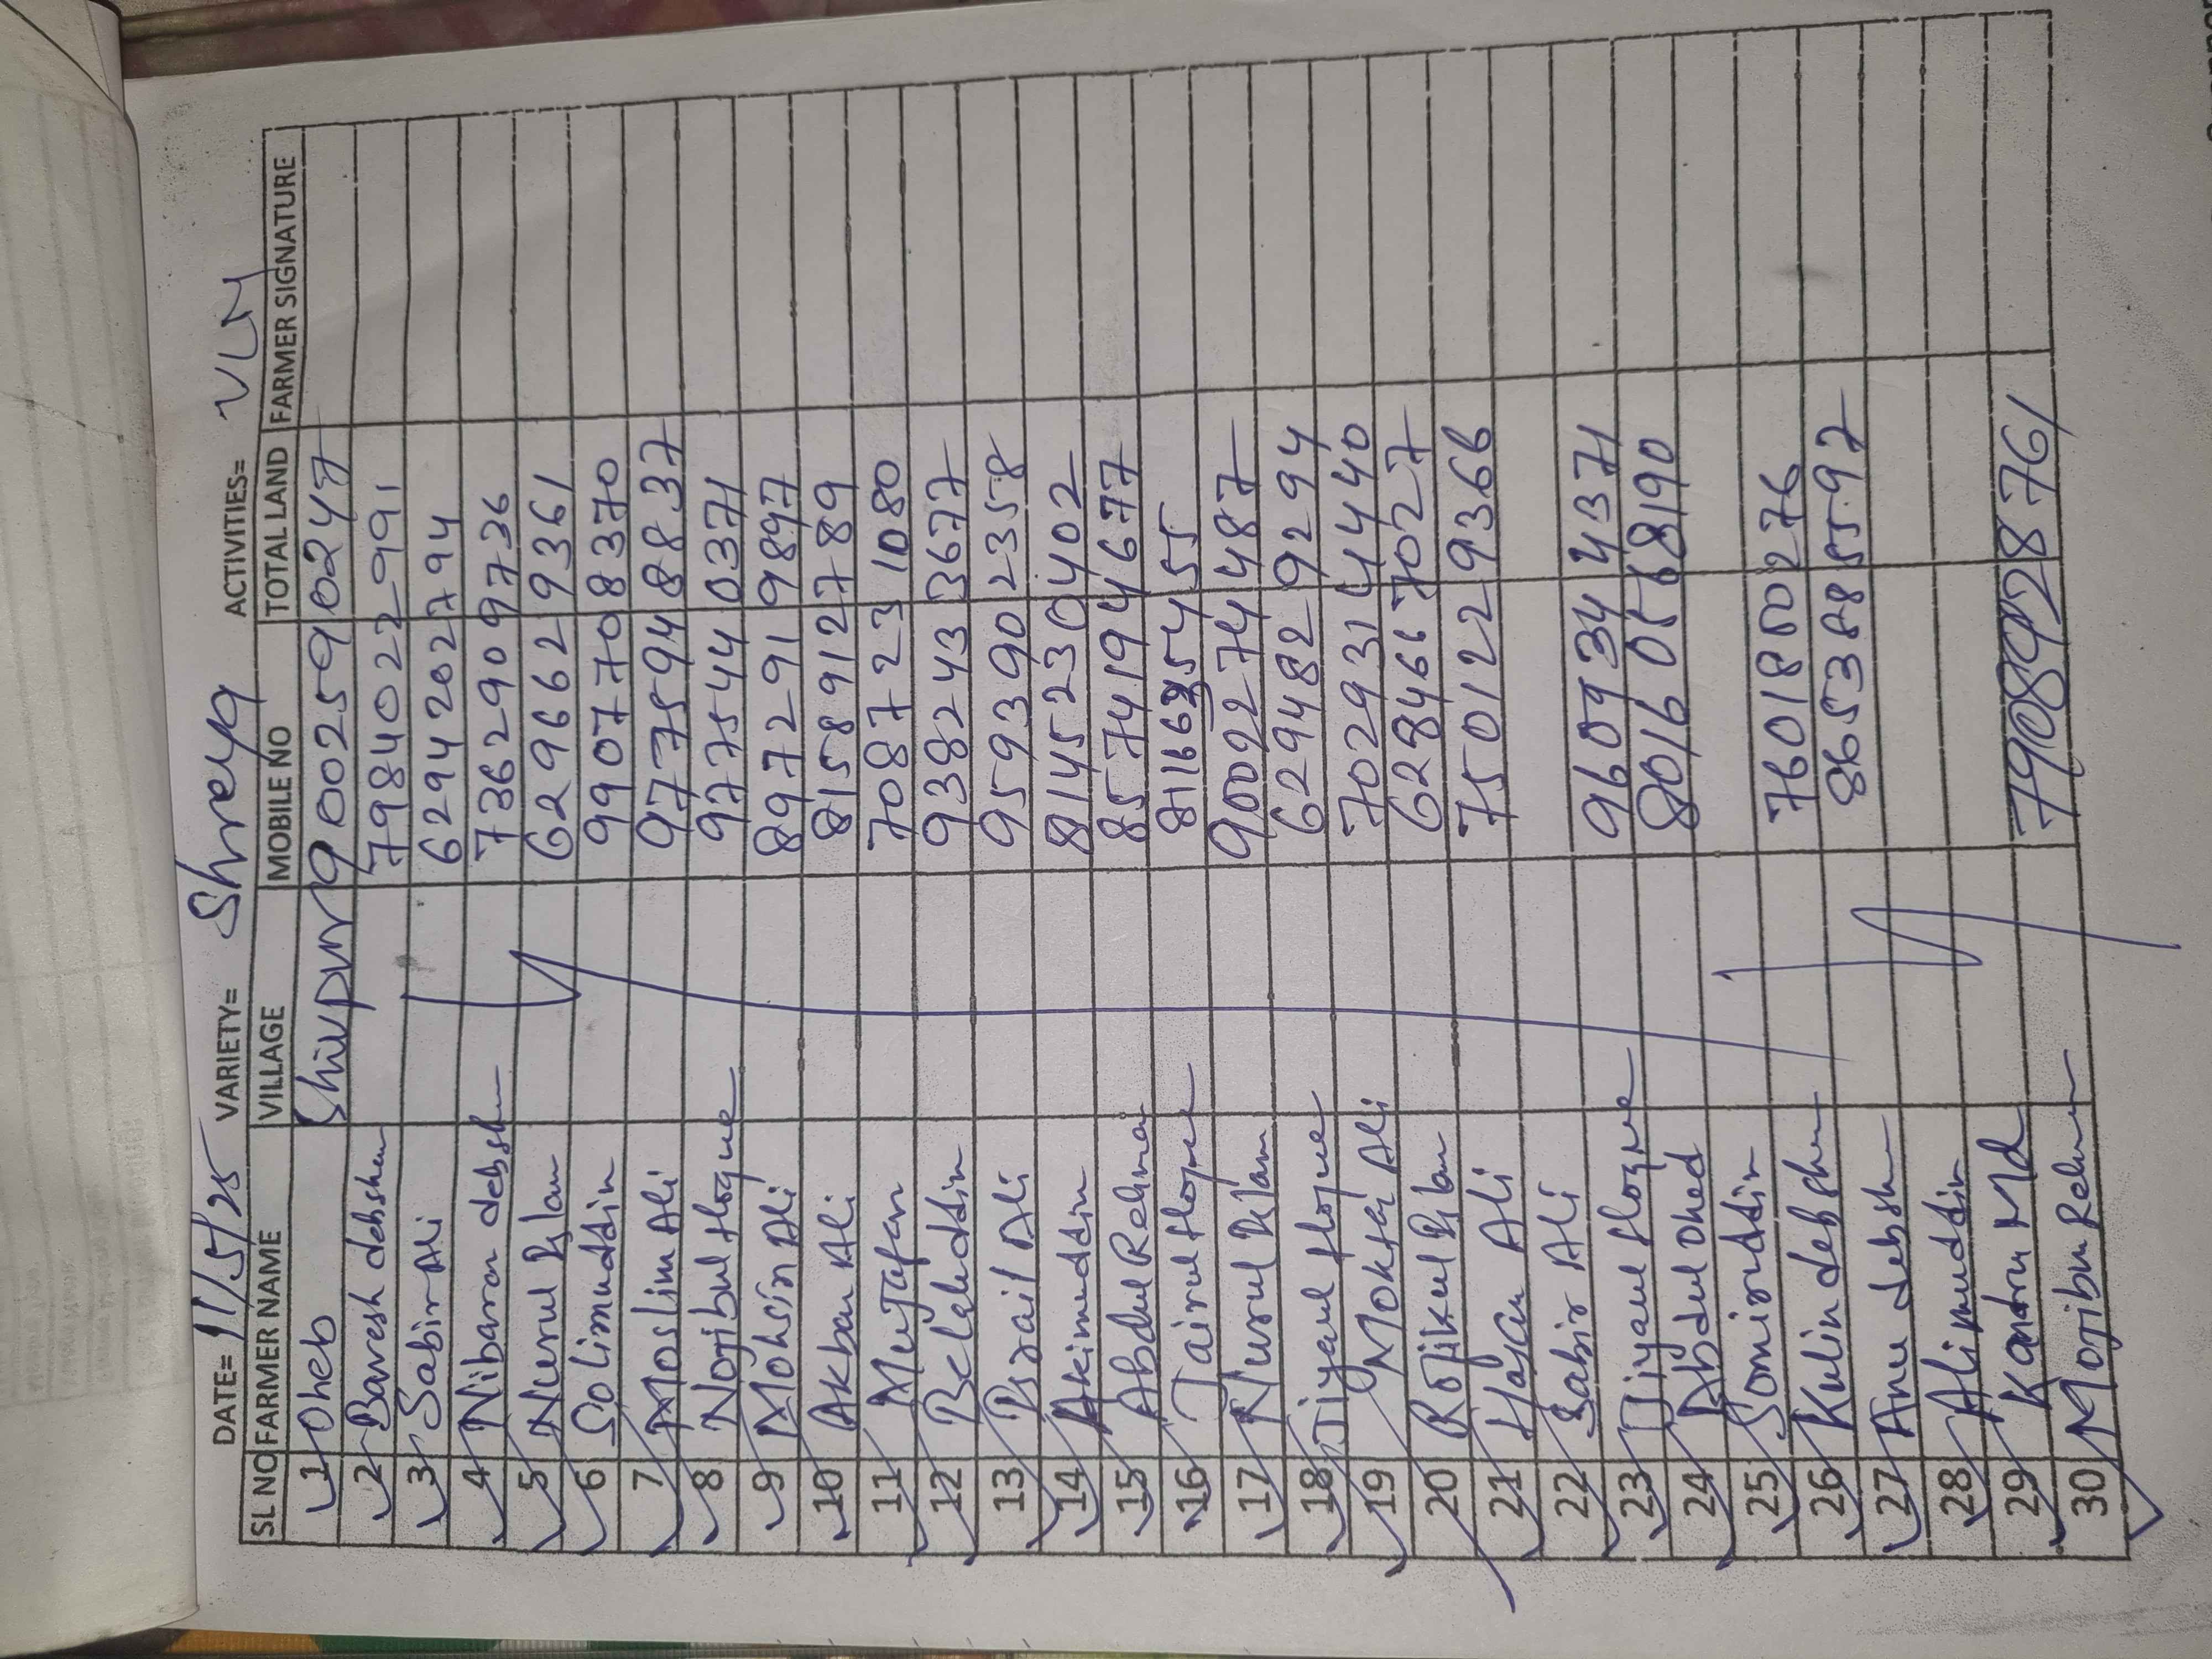 DATE= 11/5/25 VARIETY= Shreya ACTIVITIES= VLM
SL NO FARMER NAME VILLAGE MOBILE NO TOTAL LAND FARMER SIGNATURE
1 Oheb Shivpur 9002590247
2 Baresh debsharm 7984022991
3 Sabir Ali 6294202794
4 Nibaran debshr 7362909736
5 Nurul Islam 6296629361
6 Solimuddin 9907708370
7 Moslim Ali 9777594 8837
8 Nojibul Hoque 977544 0371
9 Mohsin Ali 897291 9897
10 Akbar Ali 8158912789
11 Mutafar 7087231080
12 Belaluddin 938243 3677
13 Israil Ali 959390 2358
14 Akimuddin 8145230402
15 Abdul Rehman 8574194677
16 Jairul Hoque
17 Nurul Islam 9002274487
18 Jiyaul Hoque 629482 9294
19 Moktar Ali 7029314440
20 Rojikul Islam 6284667027
21 Hajar Ali 750122 9366
22 Sabir Ali
23 Jiyaul Hoque 960934 4371
24 Abdul Ohed
25 Somiruddin
26 Kulin debshr 7601850276
27 Anu debshr
28 Alimuddin
29 Md
30 Mojibur Rehm